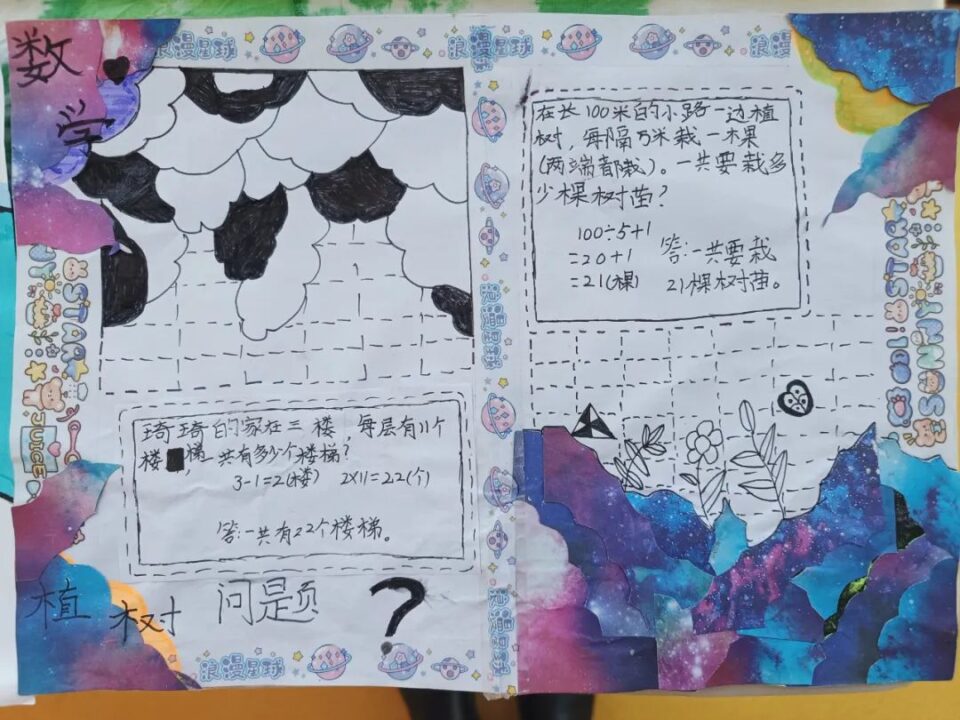 数
学
浪漫星球
浪漫星球
浪漫星球
在长100米的小路一边植
树，每隔5米栽一棵
(两端都栽)。一共要栽多
少棵树苗？
100÷5+1
=20+1
=21(棵)
答:一共要栽
21棵树苗。
STAR
JUICE
浪漫星球
琦琦的家在三楼 每层有11个
楼梯，一共有多少个楼梯？
3-1=2(楼) 2×11=22(个)
答:一共有22个楼梯。
植树问是页
?
浪漫星球
浪漫星球